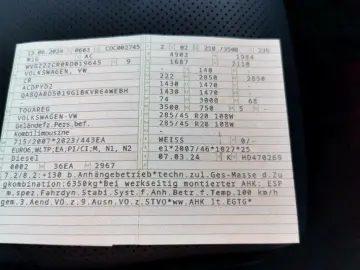 13.06.2024 0603 COC002745
M1G AC
9
VOLKSWAGEN, VW
CR
TOUAREG
VOLKSWAGEN-VW
Geländefz.Pers.bef.
Kombilimousine
715/2007*2023/443EA
EURO6,WLTP;EA,PI/CI;M, N1, N2
Diesel
0002 36EA 2967
2 02 210 /3500
4902 1984
1687 2110
- 140
222 2850 2850
1430 1470
1430 1470
74 3000 68
3500 750 5 -
285/45 R20 108W
285/45 R20 108W
WEISS 0/-
e1*2007/46*1027*25
07.03.24 K HD470269
7.2/8.2:+130 b.Anhängebetrieb*techn.zul.Ges-Masse d.Zu
gkombination:6350kg*Bei werkseitig montierter AHK: ESP
m.spez.Fahrdyn.Stabi.Syst.f.Anh.Betr.f.Temp.100 km/h
gem.3.Aend.VO.z.9.Ausn.VO.z.STVO*ww.AHK lt.EGTG*